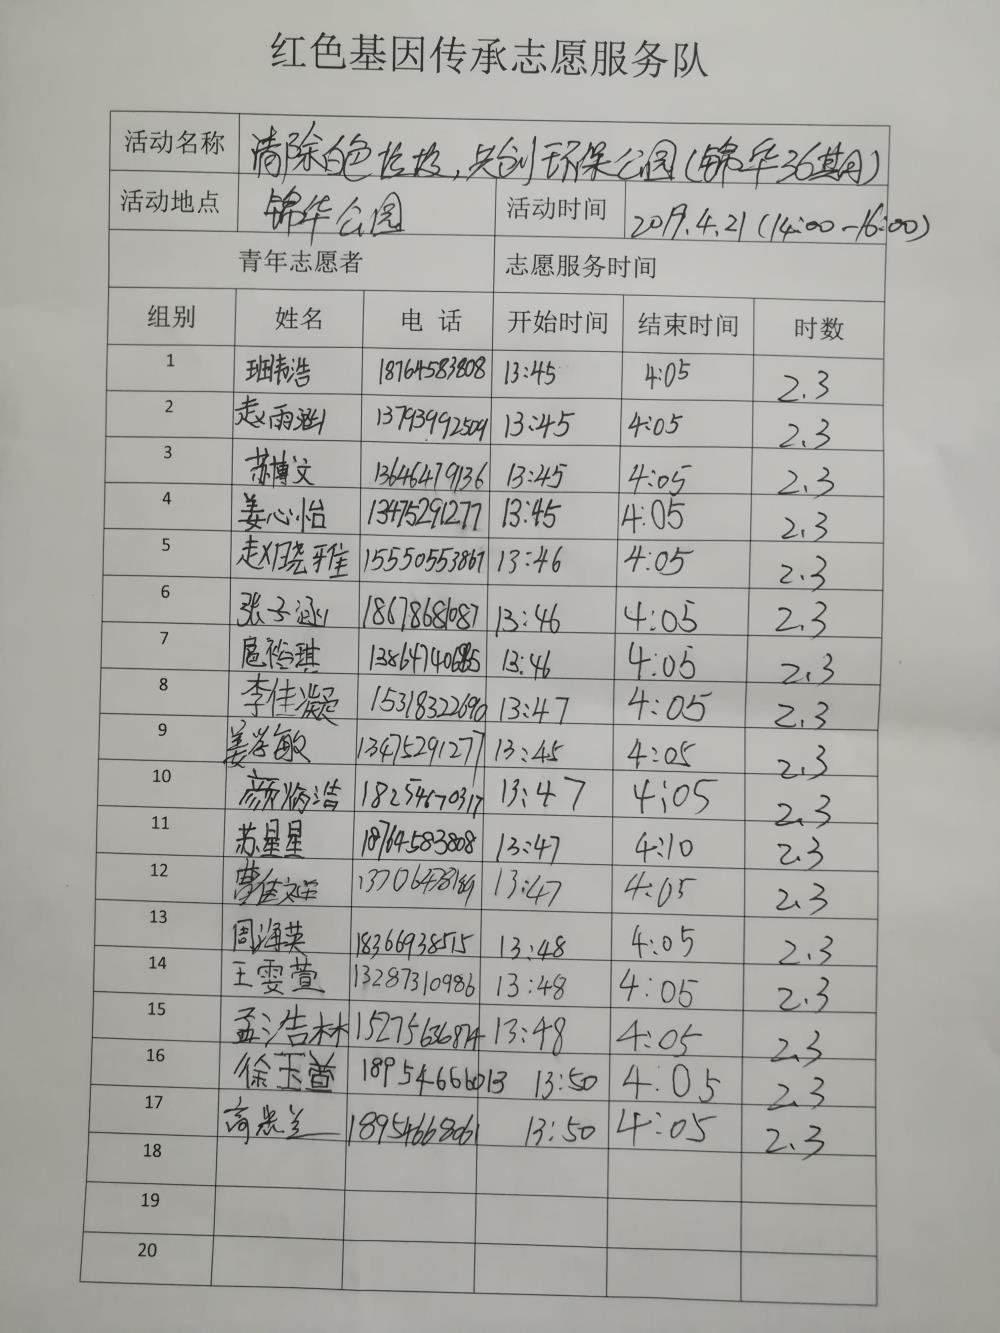 红色基因传承志愿服务队
活动名称 清除白色垃圾,共创环保公园(锦华36期)
活动地点 锦华公园 活动时间 2019.4.21(14:00-16:00)
青年志愿者 志愿服务时间
组别 姓名 电 话 开始时间 结束时间 时数
1 浩 18764583808 13:45 4:05 2.3
2 赵雨涵 13793992509 13:45 4:05 2.3
3 苏博文 13646479136 13:45 4:05 2.3
4 姜心怡 13475291277 13:45 4:05 2.3
5 赵晓雅 15550553867 13:46 4:05 2.3
6 张子涵 18678681087 13:46 4:05 2.3
7 13:46 4:05 2.3
8 李佳凝 15318322690 13:47 4:05 2.3
9 姜学敏 13475291277 13:45 4:05 2.3
10 颜炳浩 18254670317 13:47 4:05 2.3
11 苏星星 18764583808 13:47 4:10 2.3
12 曹佳 13:47 4:05 2.3
13 周海英 18366938515 13:48 4:05 2.3
14 王雯萱 13287310986 13:48 4:05 2.3
15 孟浩林 15275636874 13:48 4:05 2.3
16 徐玉萱 18954666013 13:50 4:05 2.3
17 高 兰 18954668061 13:50 4:05 2.3
18
19
20